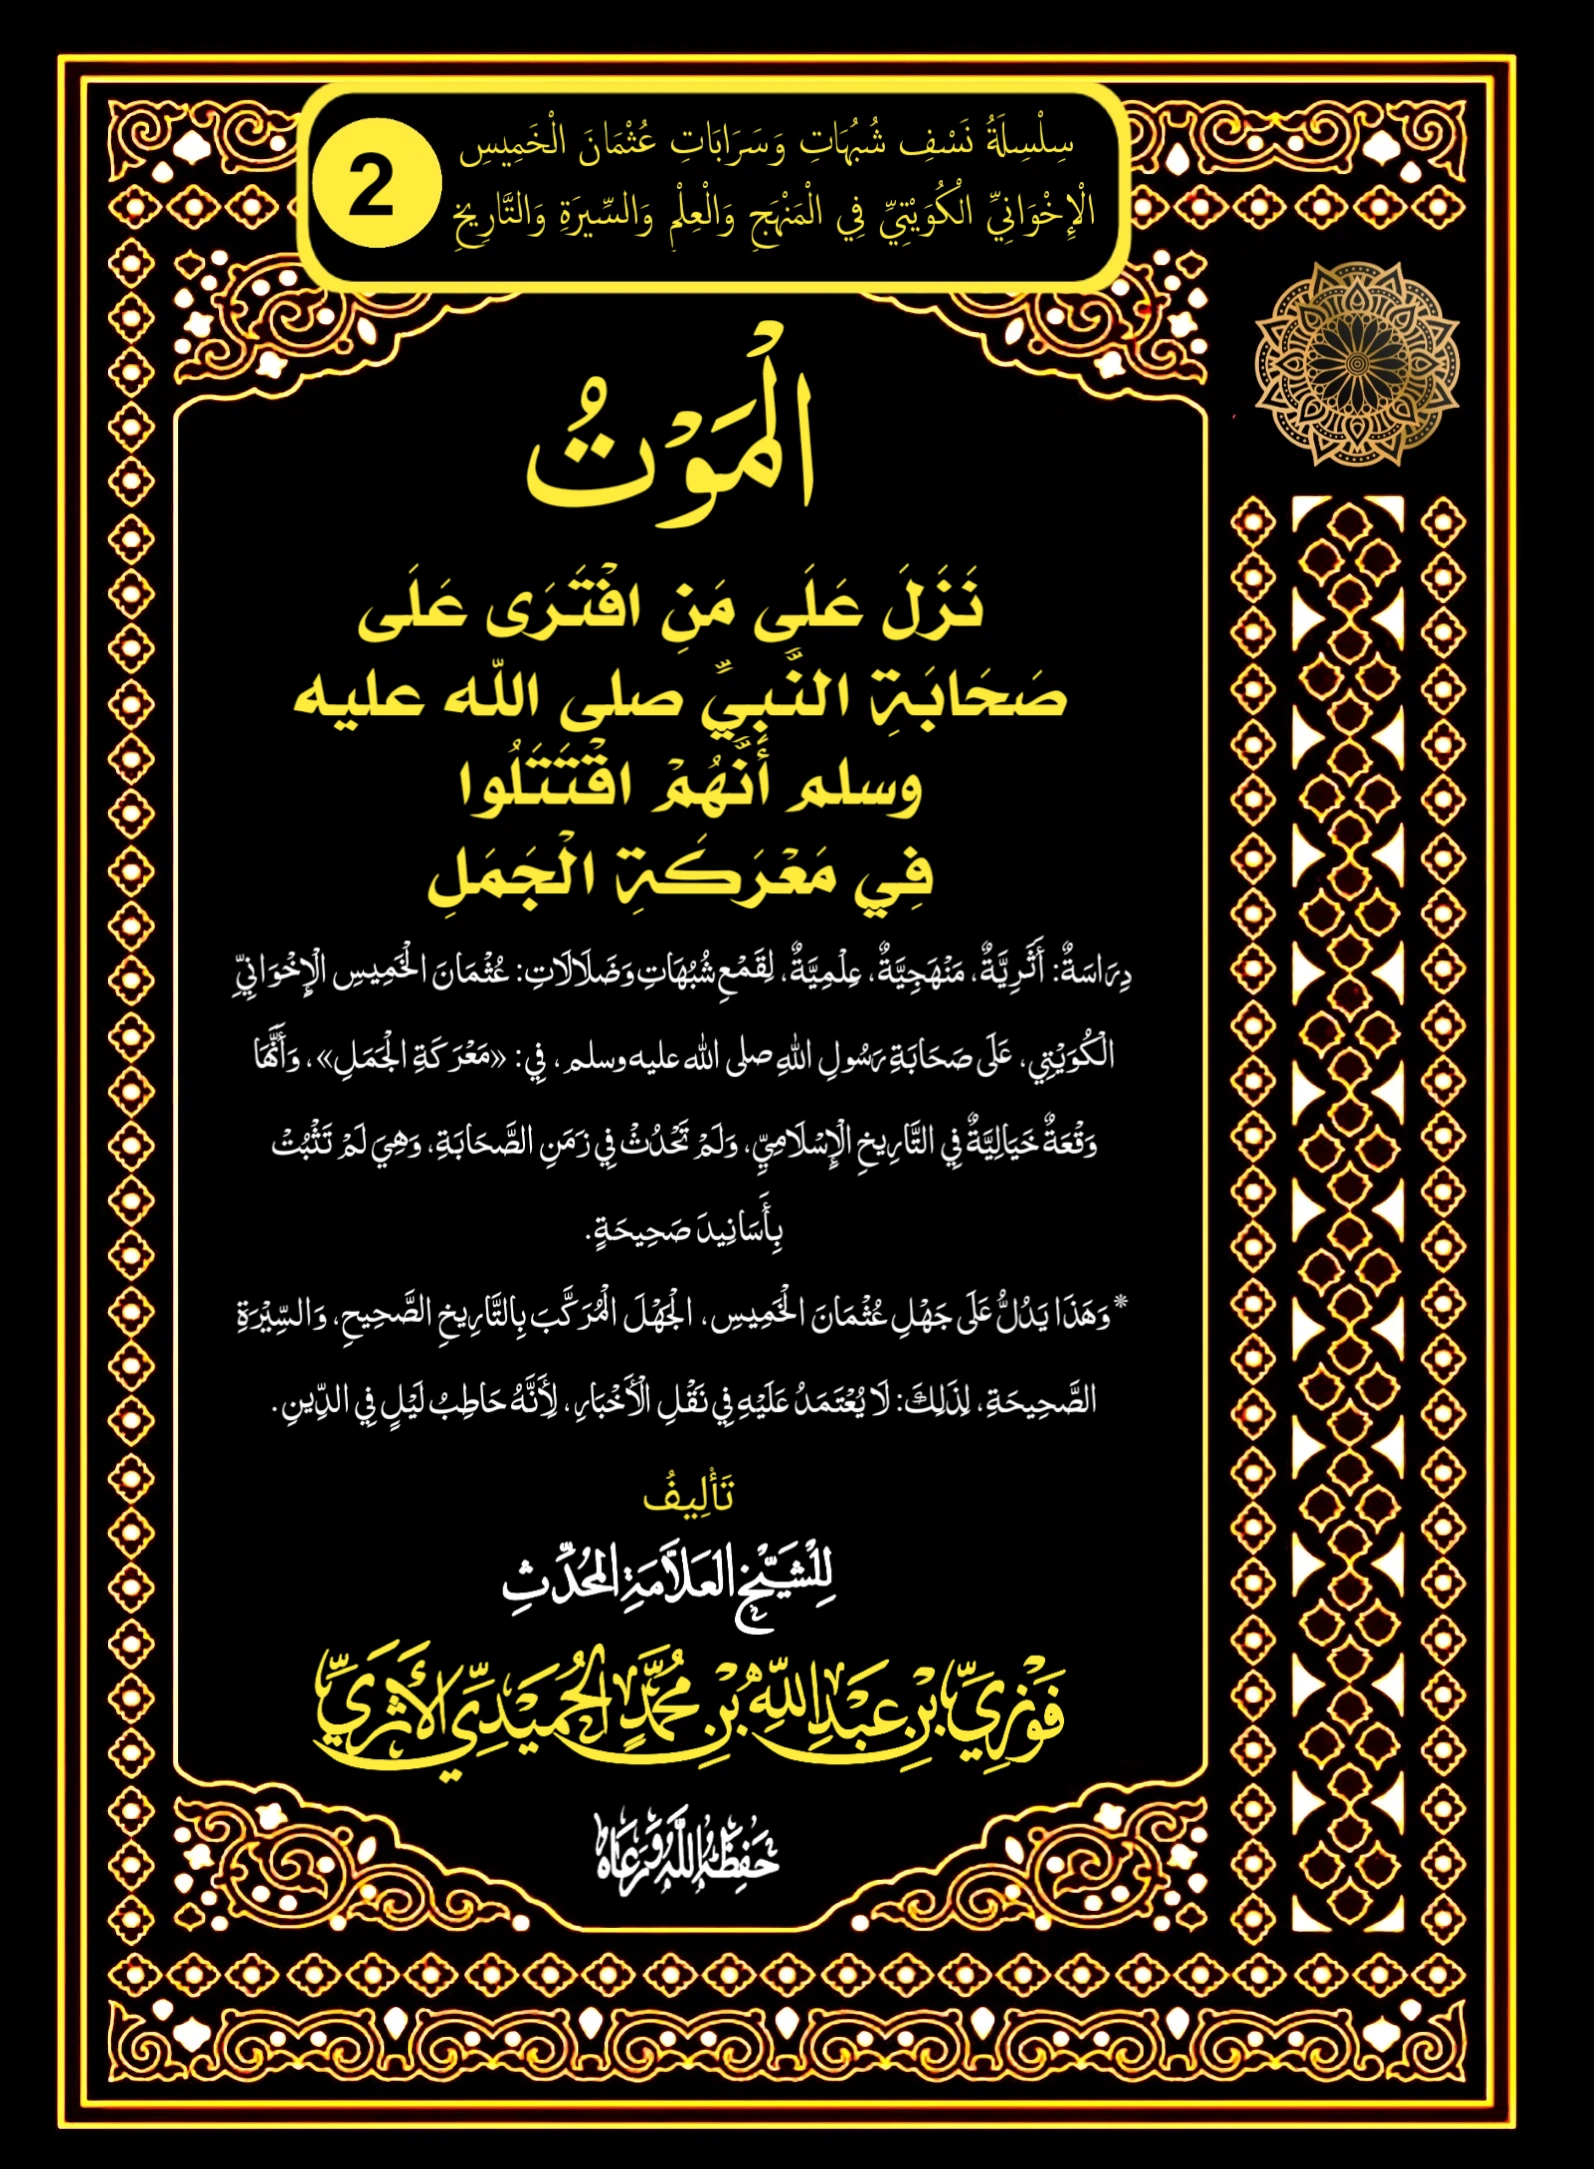 سِلْسِلَةُ نَسْفِ شُبُهَاتِ وَسَرَابَاتِ عُثْمَانَ الْخَمِيسِ
الْإِخْوَانِيِّ الْكُوَيْتِيِّ فِي الْمَنْهَجِ وَالْعِلْمِ وَالسِّيرَةِ وَالتَّارِيخِ
2
الْمَوْتُ
نَزَلَ عَلَى مَنِ افْتَرَى عَلَى
صَحَابَةِ النَّبِيِّ صلى الله عليه
وسلم أَنَّهُمْ اقْتَتَلُوا
فِي مَعْرَكَةِ الْجَمَلِ
دِرَاسَةٌ: أَثَرِيَّةٌ، مَنْهَجِيَّةٌ، عِلْمِيَّةٌ، لِقَمْعِ شُبُهَاتِ وَضَلَالَاتِ: عُثْمَانَ الْخَمِيسِ الْإِخْوَانِيِّ
الْكُوَيْتِي، عَلَى صَحَابَةِ رَسُولِ اللهِ صلى الله عليه وسلم، فِي: «مَعْرَكَةِ الْجَمَلِ»، وَأَنَّهَا
وَقْعَةٌ خَيَالِيَّةٌ فِي التَّارِيخِ الْإِسْلَامِيِّ، وَلَمْ تَحْدُثْ فِي زَمَنِ الصَّحَابَةِ، وَهِيَ لَمْ تَثْبُتْ
بِأَسَانِيدَ صَحِيحَةٍ.
* وَهَذَا يَدُلُّ عَلَى جَهْلِ عُثْمَانَ الْخَمِيسِ، الْجَهْلَ الْمُرَكَّبَ بِالتَّارِيخِ الصَّحِيحِ، وَالسِّيْرَةِ
الصَّحِيحَةِ، لِذَلِكَ: لَا يُعْتَمَدُ عَلَيْهِ فِي نَقْلِ الْأَخْبَارِ، لِأَنَّهُ حَاطِبُ لَيْلٍ فِي الدِّينِ.
تَأْلِيفُ
لِلشَّيْخِ الْعَلَّامَةِ الْمُحَدِّثِ
فَوْزِيِّ بْنِ عَبْدِ اللَّهِ بْنِ مُحَمَّدٍ الْحُمَيْدِيِّ الْأَثَرِيِّ
حَفِظَهُ اللَّهُ وَرَعَاهُ